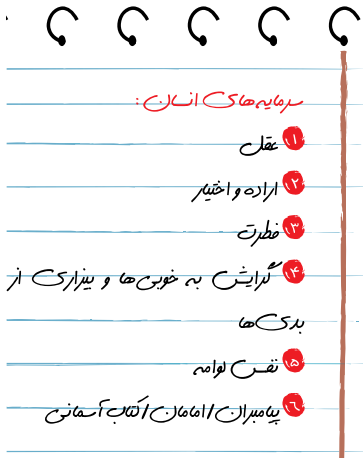 سرمایه‌های انسان:
۱ عقل
۲ اراده و اختیار
۳ فطرت
۴ گرایش به خوبی‌ها و بیزاری از
بدی‌ها
۵ نفس لوامه
۶ پیامبران / امامان / کتاب آسمانی